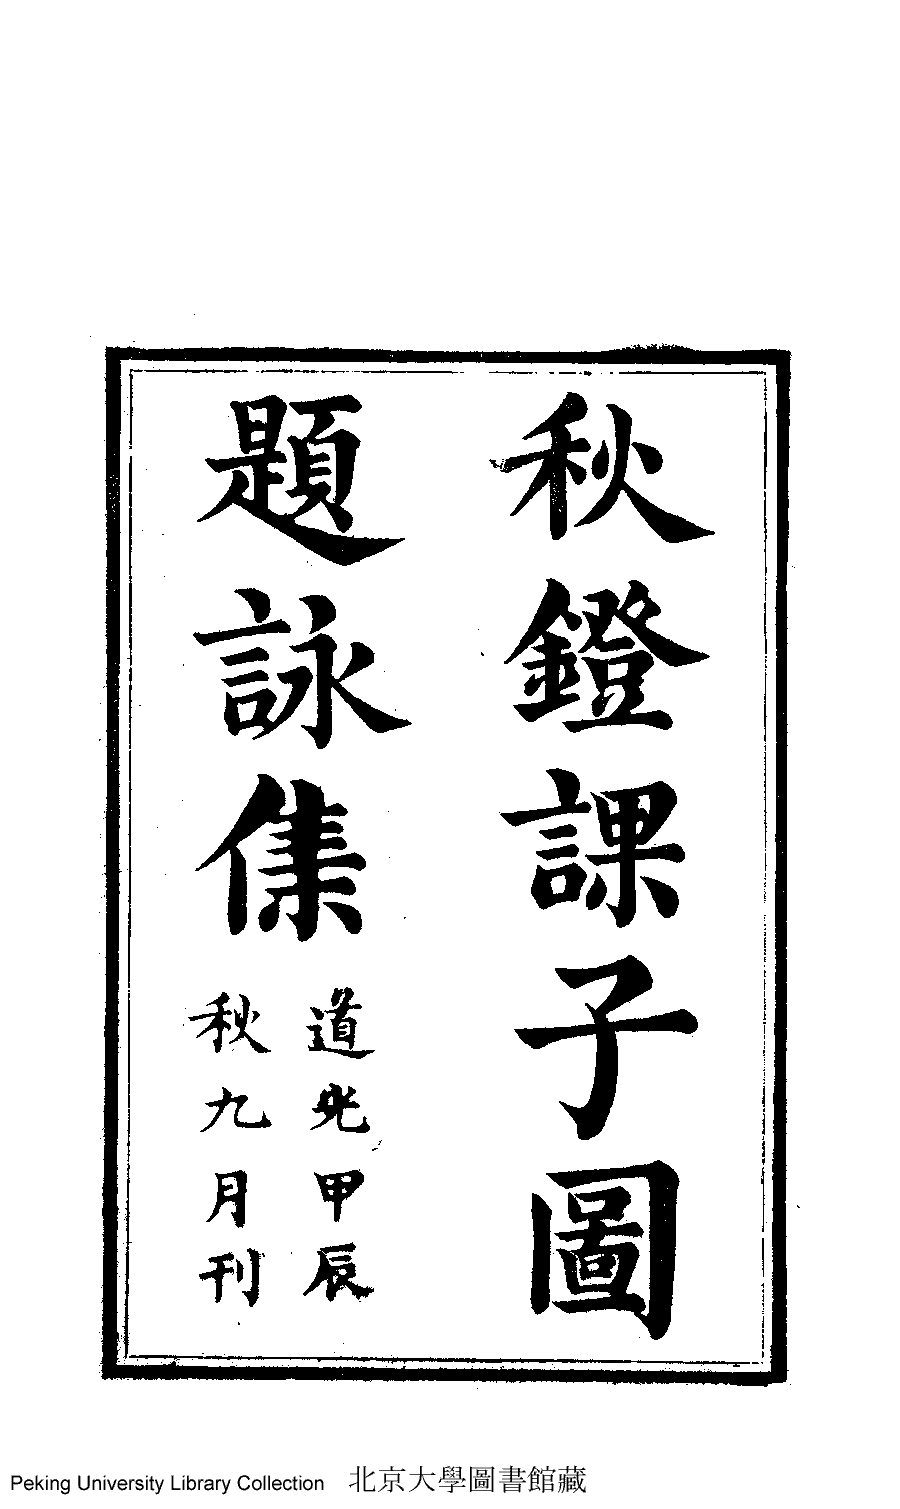 秋鐙課子圖
題詠集
道光甲辰
秋九月刊
Peking University Library Collection 北京大學圖書館藏